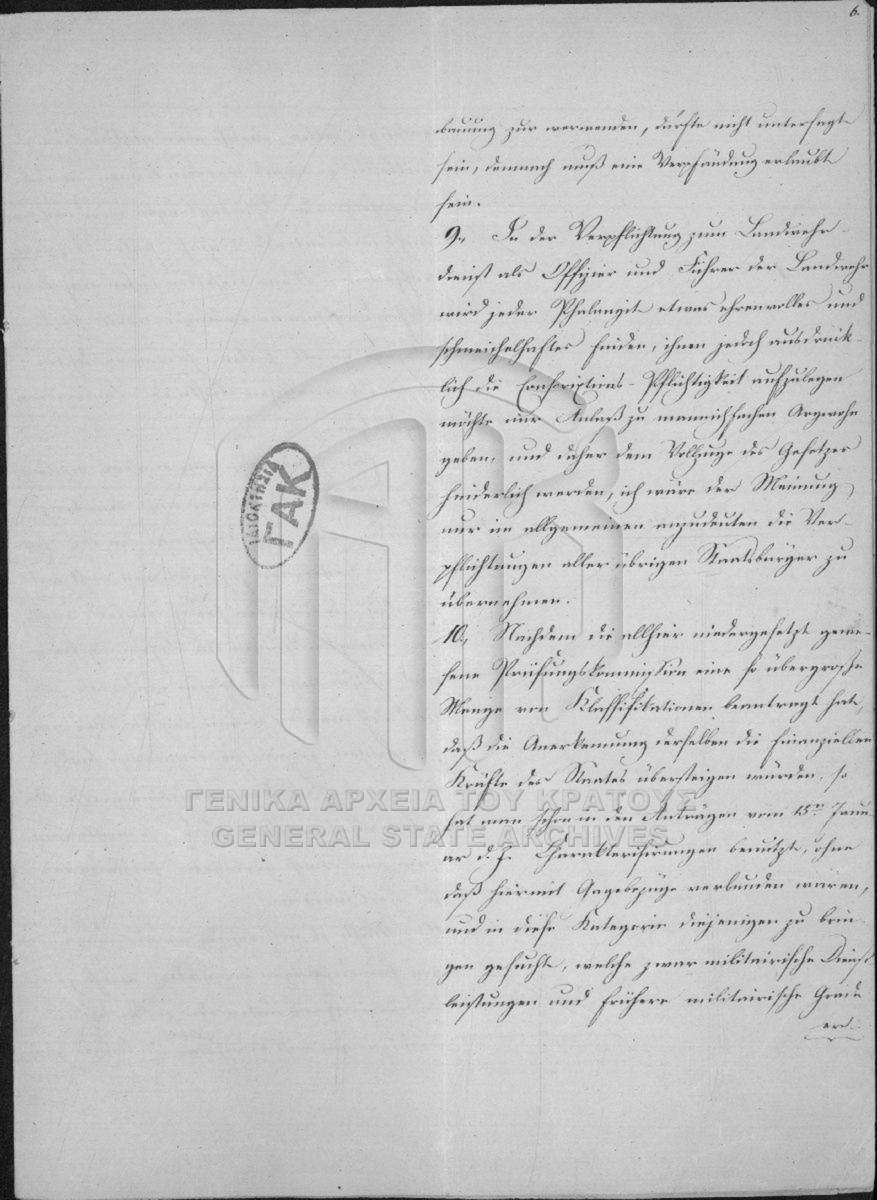 6.
bauung zur verwenden, dürfte nicht untersagt
sein, demnach muß eine Verpfändung erlaubt
sein.
9., In der Verpflichtung zum Landwehr-
dienst als Offizier und Führer der Landwehr
wird jeder Phalangit etwas ehrenvolles und
schmeichelhaftes finden, ihnen jedoch ausdrück-
lich die Conscriptions-Pflichtigkeit aufzulegen
möchte nur Anlaß zu mannichfachen Argwohn
geben, und daher dem Vollzuge des Gesetzes
hinderlich werden, ich wäre der Meinung,
nur im allgemeinen anzudeuten die Ver-
pflichtungen aller übrigen Staatsbürger zu
übernehmen.
10., Nachdem die allhier niedergesetzt gewe-
sene Prüfungskommission eine so übergroße
Menge von Klassifikationen beantragt hat,
daß die Anerkennung derselben die finanziellen
Kräfte des Staates übersteigen würden, so
hat man schon in den Anträgen vom 15ten Janu-
ar d. J. Charakterisirungen benützt, ohne
daß hiermit Gagebezüge verbunden wären,
und in diese Kategorie diejenigen zu brin-
gen gesucht, welche zwar militairische Dienst
leistungen und frühere militairische Grade
er-
ΓΑΚ
ΓΕΝΙΚΑ ΑΡΧΕΙΑ ΤΟΥ ΚΡΑΤΟΥΣ
GENERAL STATE ARCHIVES